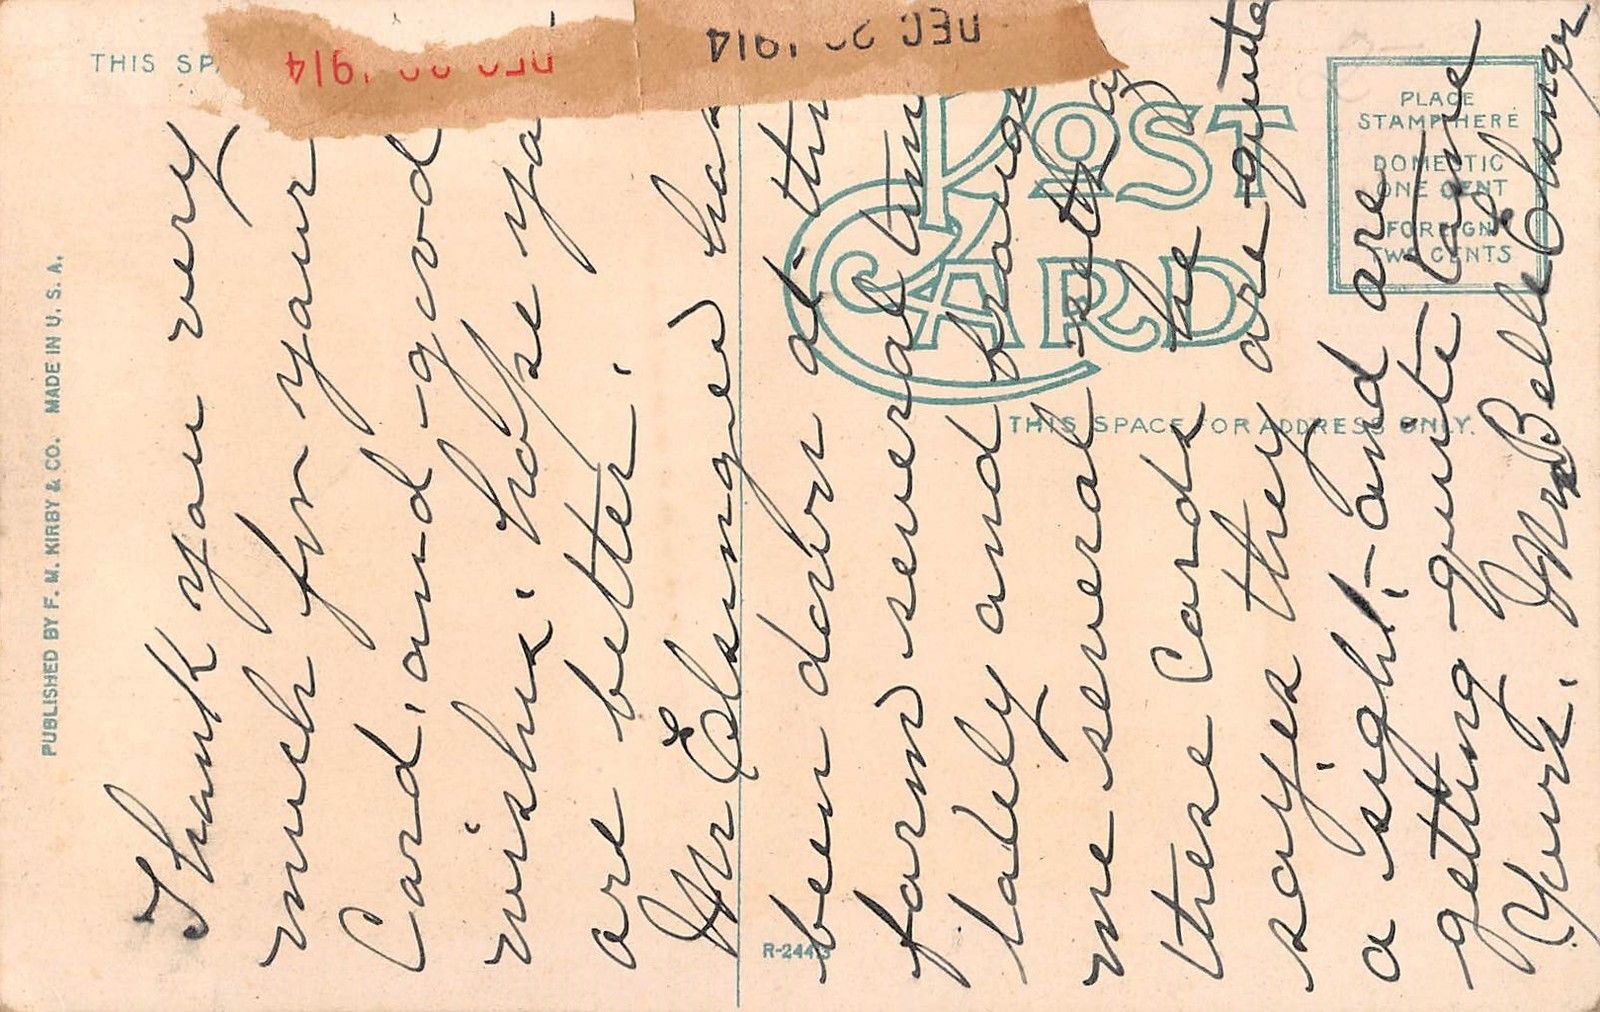 THIS SPA
DEC 1914
DEC 22 1914
POST CARD
PLACE
STAMP HERE
DOMESTIC
ONE CENT
FOREIGN
TWO CENTS
THIS SPACE FOR ADDRESS ONLY.
PUBLISHED BY F. M. KIRBY & CO. MADE IN U. S. A.
R-244
Thank you very
much for your
Card, and good
wishes. hope you
are better.
Mr Elsinger has
been down at the
farm several
lately and
me several
these Cards he
sayes they are quite
a sight, and are
getting quite
Yours. Mrs Belle Elsinger